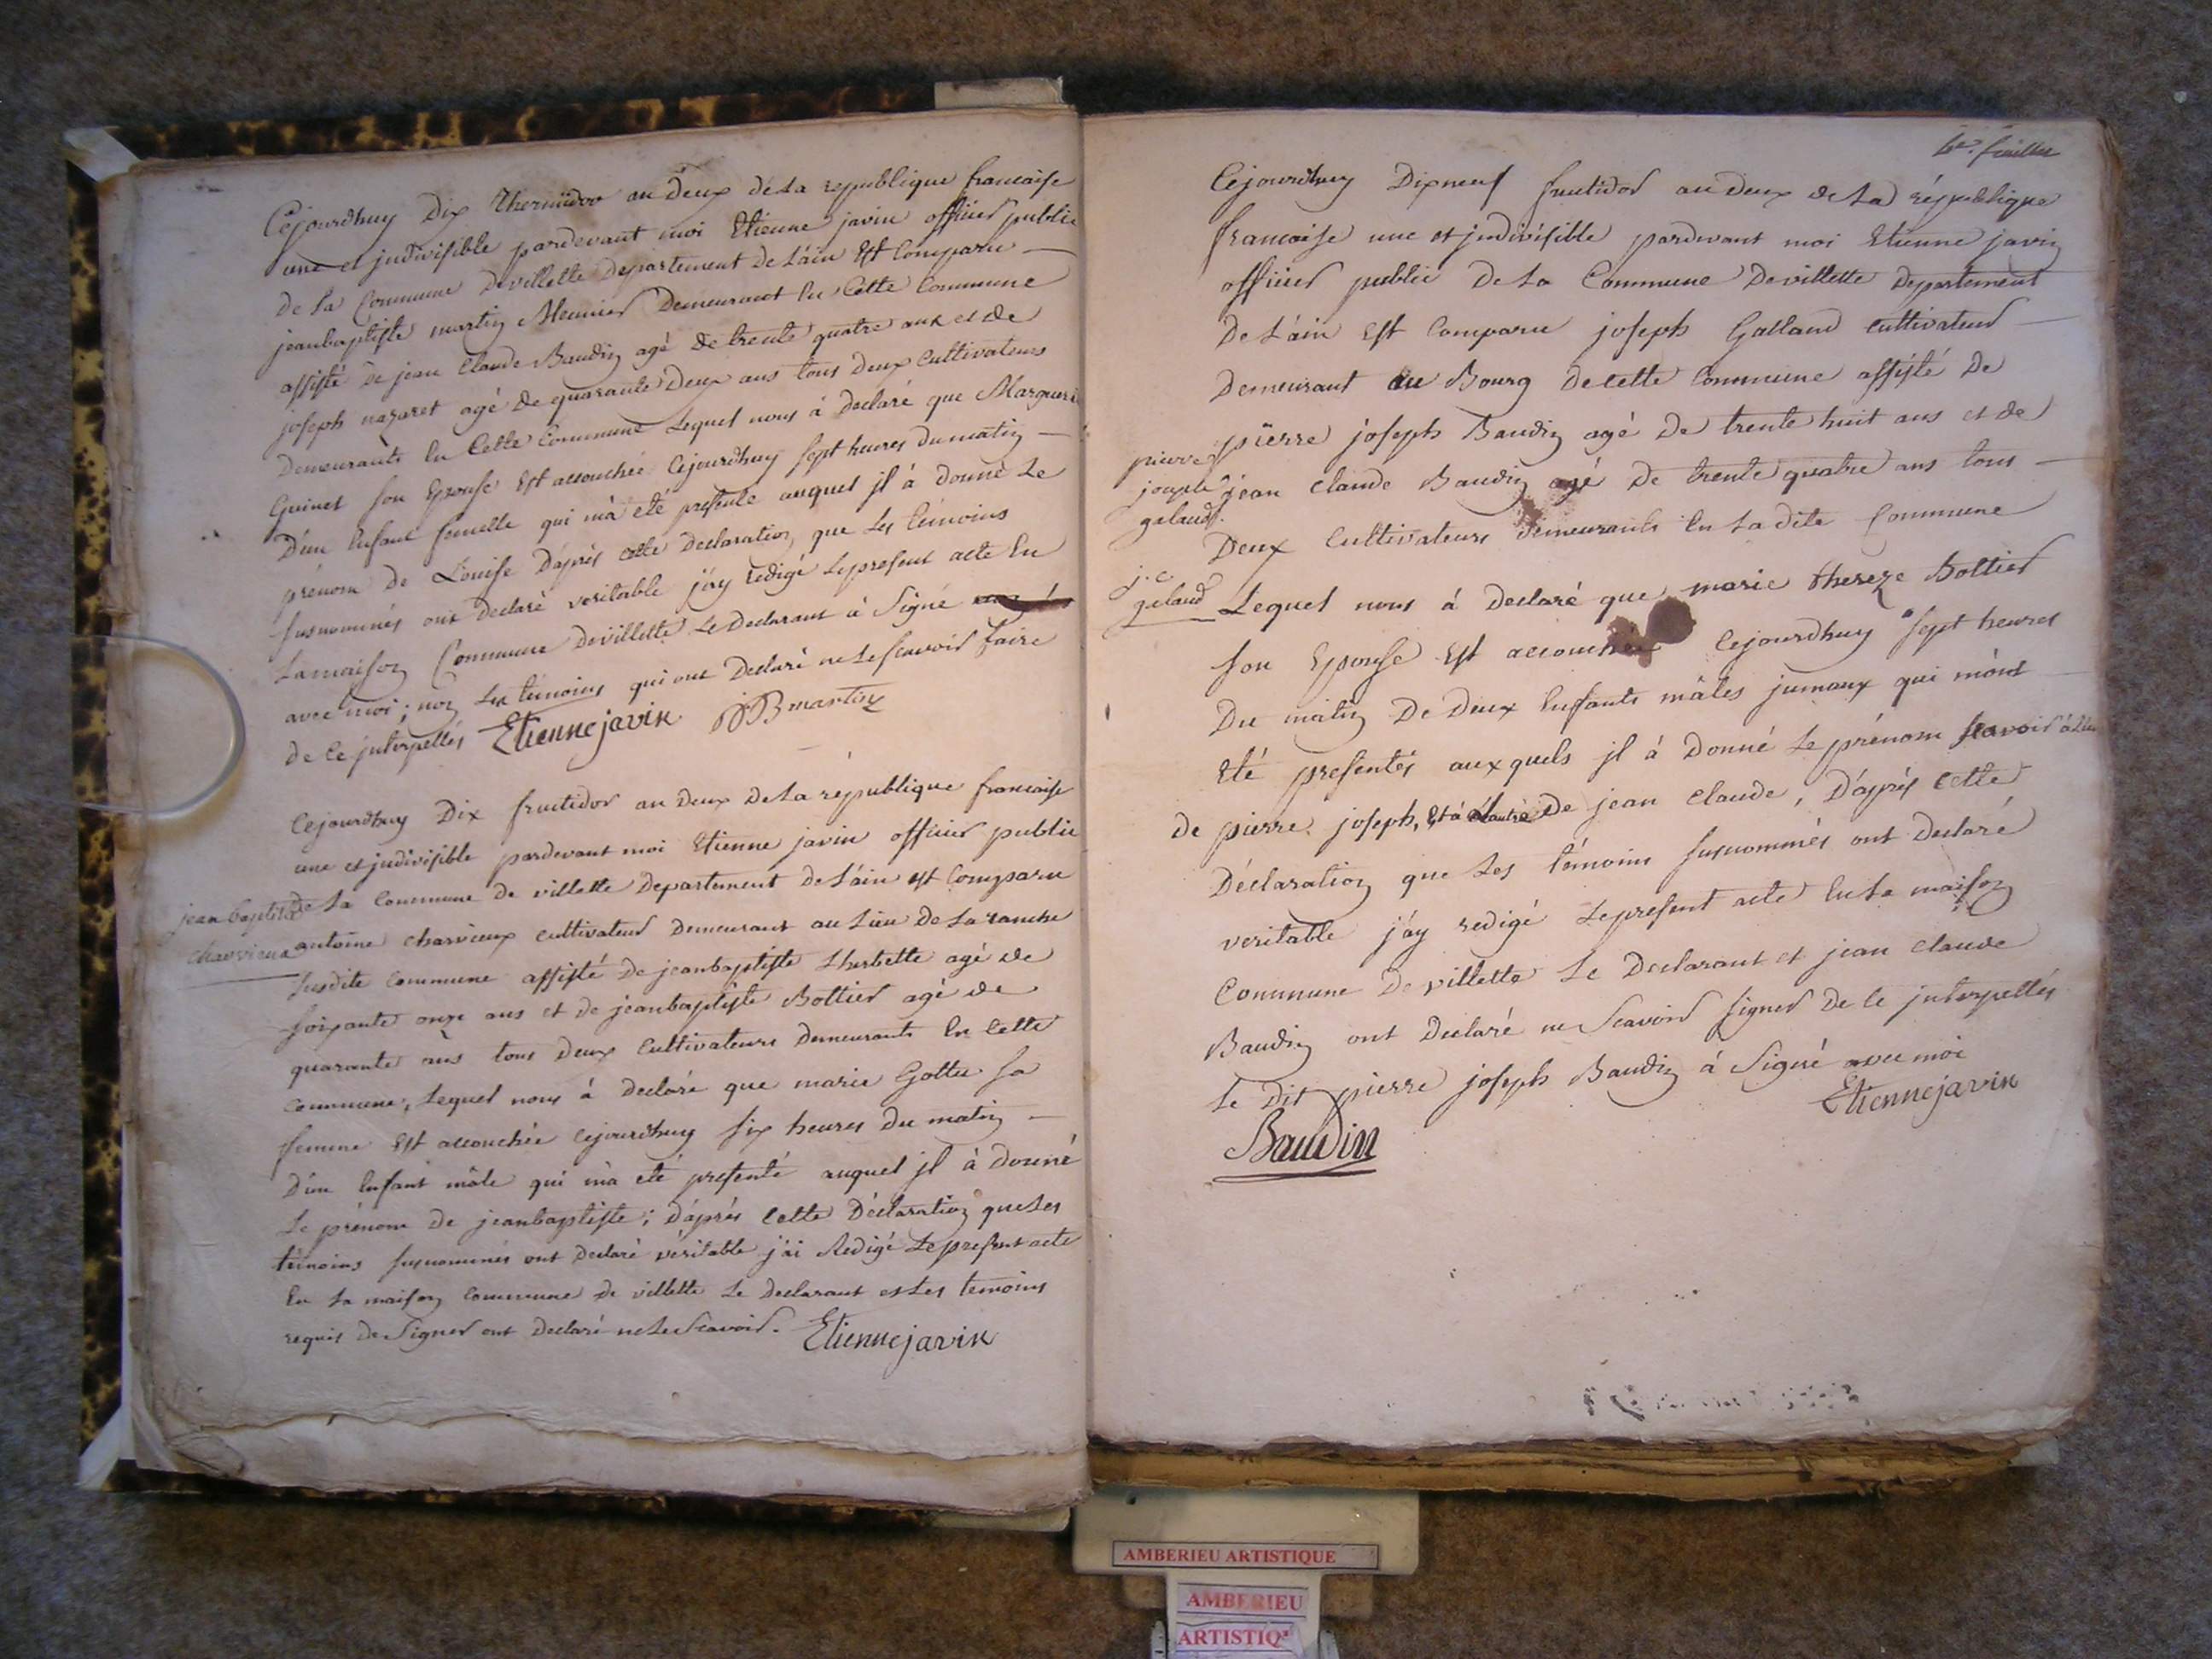 Cejourdhuy Dix thermidor an Deux de la republique francaise
une et jndivisible pardevant moi Etienne javin officier public
de la Commune Devillette Departement de L'áin Est Comparu —
jeanbaptiste martin Meunier Demeurant En Cette Commune
assisté de jean Claude Baudin agé de trente quatre ans et de
joseph nazaret agé de quarante Deux ans tous Deux Cultivateurs
Demeurants En Cette Commune Lequel nous á declaré que Margueri
Guinet son Epouse Est accouchée Cejourdhuy sept heures du matin —
D'un Enfant femelle qui m'a eté presenté auquel jl á donné Le
prénom de Louise D'aprés cette Declaration que Les témoins
susnommés ont declaré veritable j'áy redigé Lepresent acte En
Lamaison Commune Devillette Le Declarant á Signé
avec moi ; non Les témoins qui ont Declaré ne Le scavoir faire
de ce jnterpellés Etienne javin JB martin
Cejourdhuy Dix fructidor an Deux de La république francaise
une et jndivisible pardevant moi Etienne javin officier public
jean baptiste de La Commune de villette Departement de L'áin est Comparu
charvieux antoine charvieux cultivateur Demeurant au Lieu de La ranche
susdite Commune assisté de jeanbaptiste Lherbette agé de
soixante onze ans et de jeanbaptiste Bottier agé de
quarante ans tous Deux Cultivateurs Demeurants En Cette
Commune, Lequel nous á declaré que marie Gottu sa
femme Est accouchée cejourdhuy six heures du matin —
D'un Enfant mâle qui m'a eté presenté auquel jl á donné
Le prénom de jeanbaptiste ; D'aprés cette Déclaration que Les
témoins susnommés ont declaré véritable j'ai Redigé Lepresent acte
En La maison Commune de villette Le Declarant et Les temoins
requis de Signer ont Declaré ne Le Scavoir. Etienne javin
feuillet
Cejourdhuy Dixneuf fructidor an Deux de La république
francaise une et jndivisible pardevant moi Etienne javin
officier public De La Commune Devillette Departement
De L'áin Est Comparu joseph Galland cultivateur —
Demeurant au Bourg de cette Commune assisté De
pierre joseph Baudin agé De trente huit ans et de
pierre
joseph
galand.
jean Claude Baudin agé De trente quatre ans tous —
Deux Cultivateurs Demeurants En La dite Commune
j. c.
galand
Lequel nous á Declaré que marie thereze Bottier
son Epouse Est accouchée Cejourdhuy sept heures
Du matin De Deux Enfants mâles jumaux qui m'ont
Eté presentés aux quels jl á Donné Le prénom scavoir á L'un
de pierre joseph, Et á L'autre De jean claude, D'aprés cette
Déclaration que Les témoins susnommés ont declaré
veritable j'áy redigé Lepresent acte En La maison
Commune De villette Le Declarant et jean claude
Baudin ont Declaré ne Scavoir signer De Ce jnterpellés
Le Dit pierre joseph Baudin á Signé avec moi
Etienne javin
Baudin
AMBERIEU ARTISTIQUE
AMBERIEU
ARTISTIQ